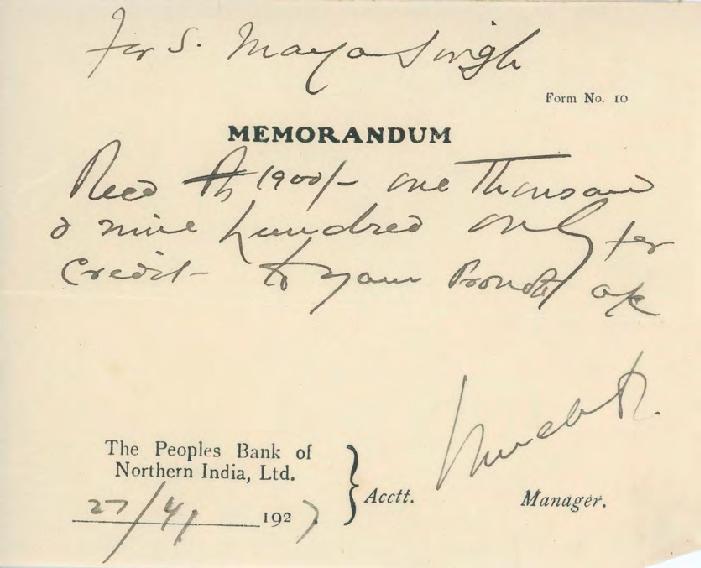 For S. Maya Singh
Form No. 10
MEMORANDUM
Recd Rs 1900/- one Thousand
& nine hundred only for
Credit to your Pronote a/c
The Peoples Bank of
Northern India, Ltd.
27/4/ 1927
Acctt. Manager.